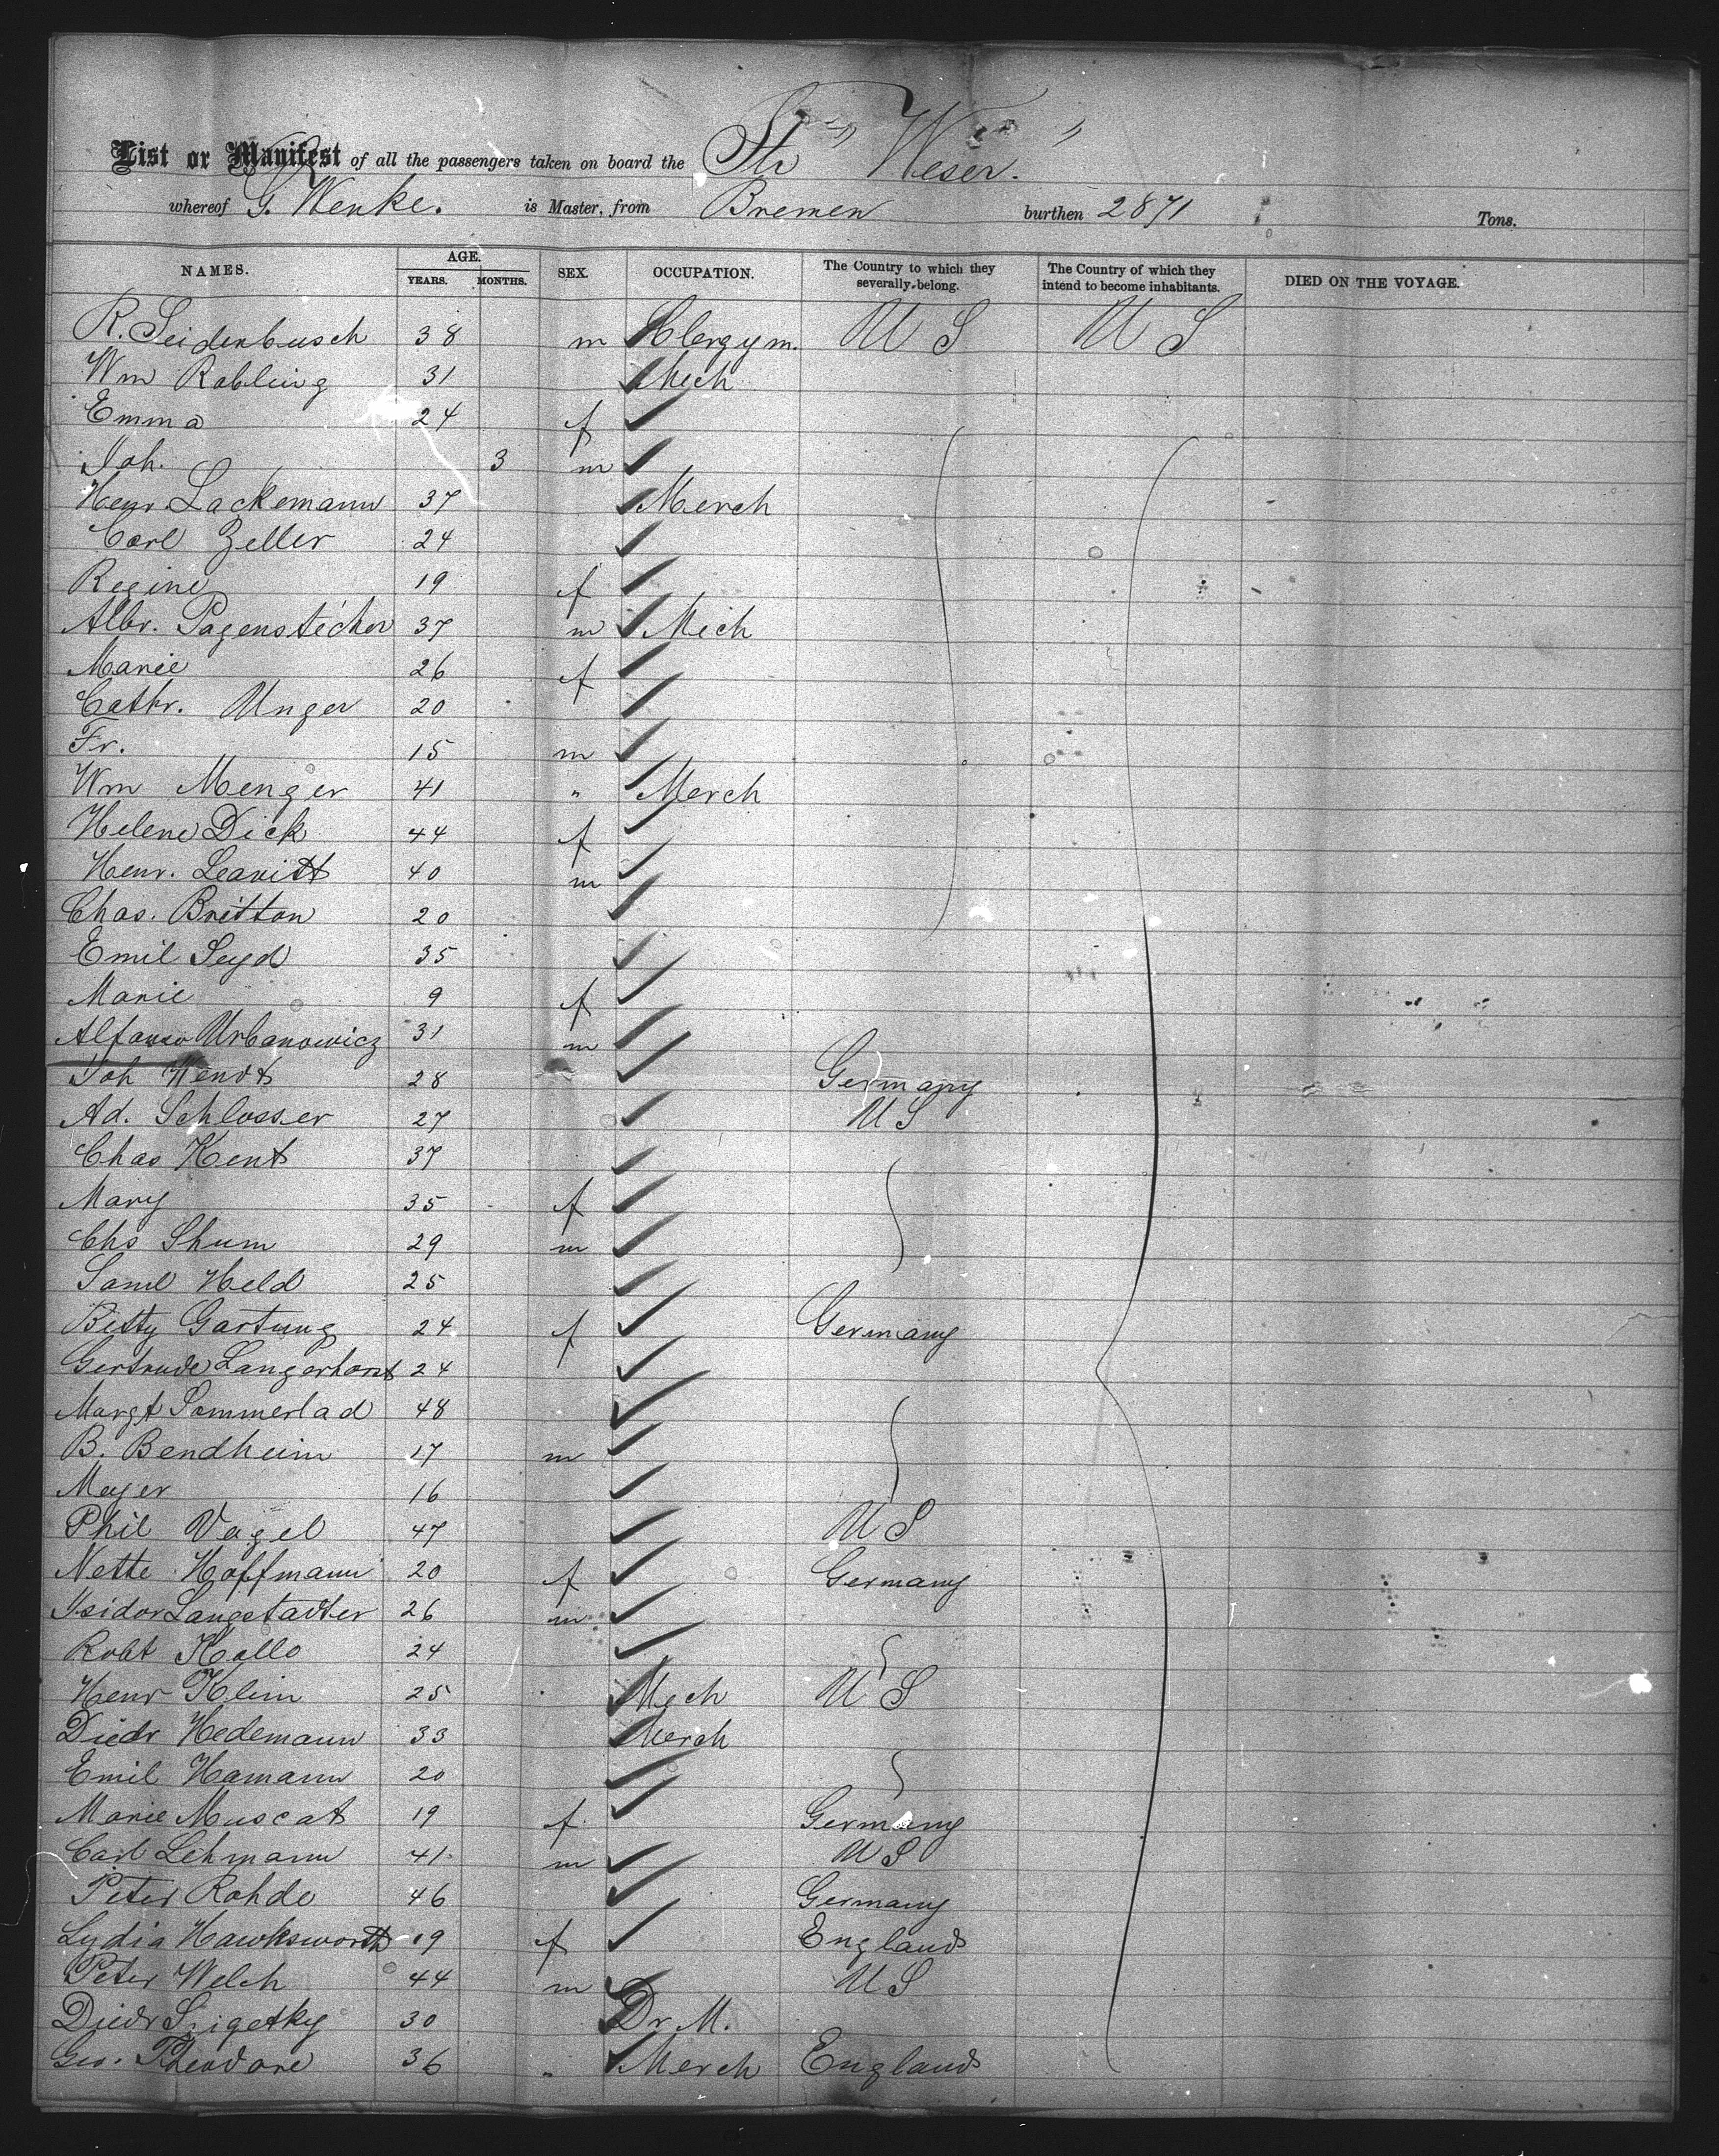 List or Manifest of all the passengers taken on board the Str "Weser"
whereof G. Wenke. is Master, from Bremen burthen 2871 Tons.
NAMES. AGE. YEARS. MONTHS. SEX. OCCUPATION. The Country to which they severally belong. The Country of which they intend to become inhabitants. DIED ON THE VOYAGE.
R. Seidenbusch 38 m Clergym. U S U S
Wm Robling 31 Mech
Emma 24 f
Joh. 3 m
Henr. Lackemann 37 Merch
Carl Zeller 24
Regine 19 f
Albr. Pagenstecher 37 m Mech
Marie 26 f
Cathr. Unger 20
Fr. 15 m
Wm Menger 41 " Merch
Helene Dick 44 f
Henr. Leavitt 40 m
Chas. Britton 20
Emil Seyd 35
Marie 9 f
Alfonso Urbanowicz 31 m
Joh Wendt 28 Germany
Ad. Schlosser 27 U S
Chas Kent 37
Mary 35 f
Chs Shum 29 m
Saml Held 25
Betty Gartung 24 f Germany
Gertrude Langerhorst 24
Margt Sommerlad 48
B. Bendheim 17 m
Meyer 16
Phil Vogel 47 U S
Nette Hoffmann 20 f Germany
Isidor Langstadter 26 m
Robt Kallo 24
Henr Klein 25 Mech U S
Diedr Hedemann 33 Merch
Emil Hamann 20
Marie Muscat 19 f Germany
Carl Lehmann 41 m U S
Peter Rohde 46 Germany
Lydia Hawksworth 19 f England
Peter Welch 44 m U S
Diedr Szigetky 30 Dr M.
Geo. Theodore 36 " Merch England